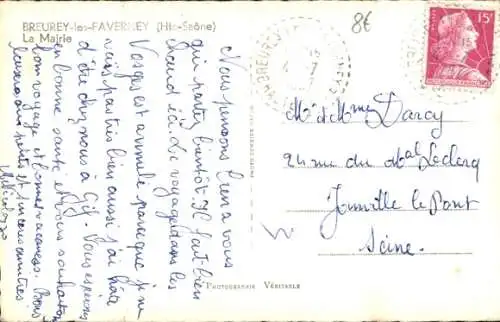 BREUREY-les-FAVERNEY (Hte-Saône)
La Mairie
8€
15F
Nous pensons bien a vous
qui partez bientôt. Il fait bien
chaud ici. Le voyage dans les
Vosges est annulé parce que je ne
suis pas très bien aussi j'ai hâte
d'être chez nous à Gif. Vous espérons
en bonne santé et vous souhaitons
bon voyage et bonnes vacances. Bons
baisers
PHOTOGRAPHIE VÉRITABLE
Mr et Mme Darcy
24 rue du Mal Leclerc
Joinville le Pont
Seine.